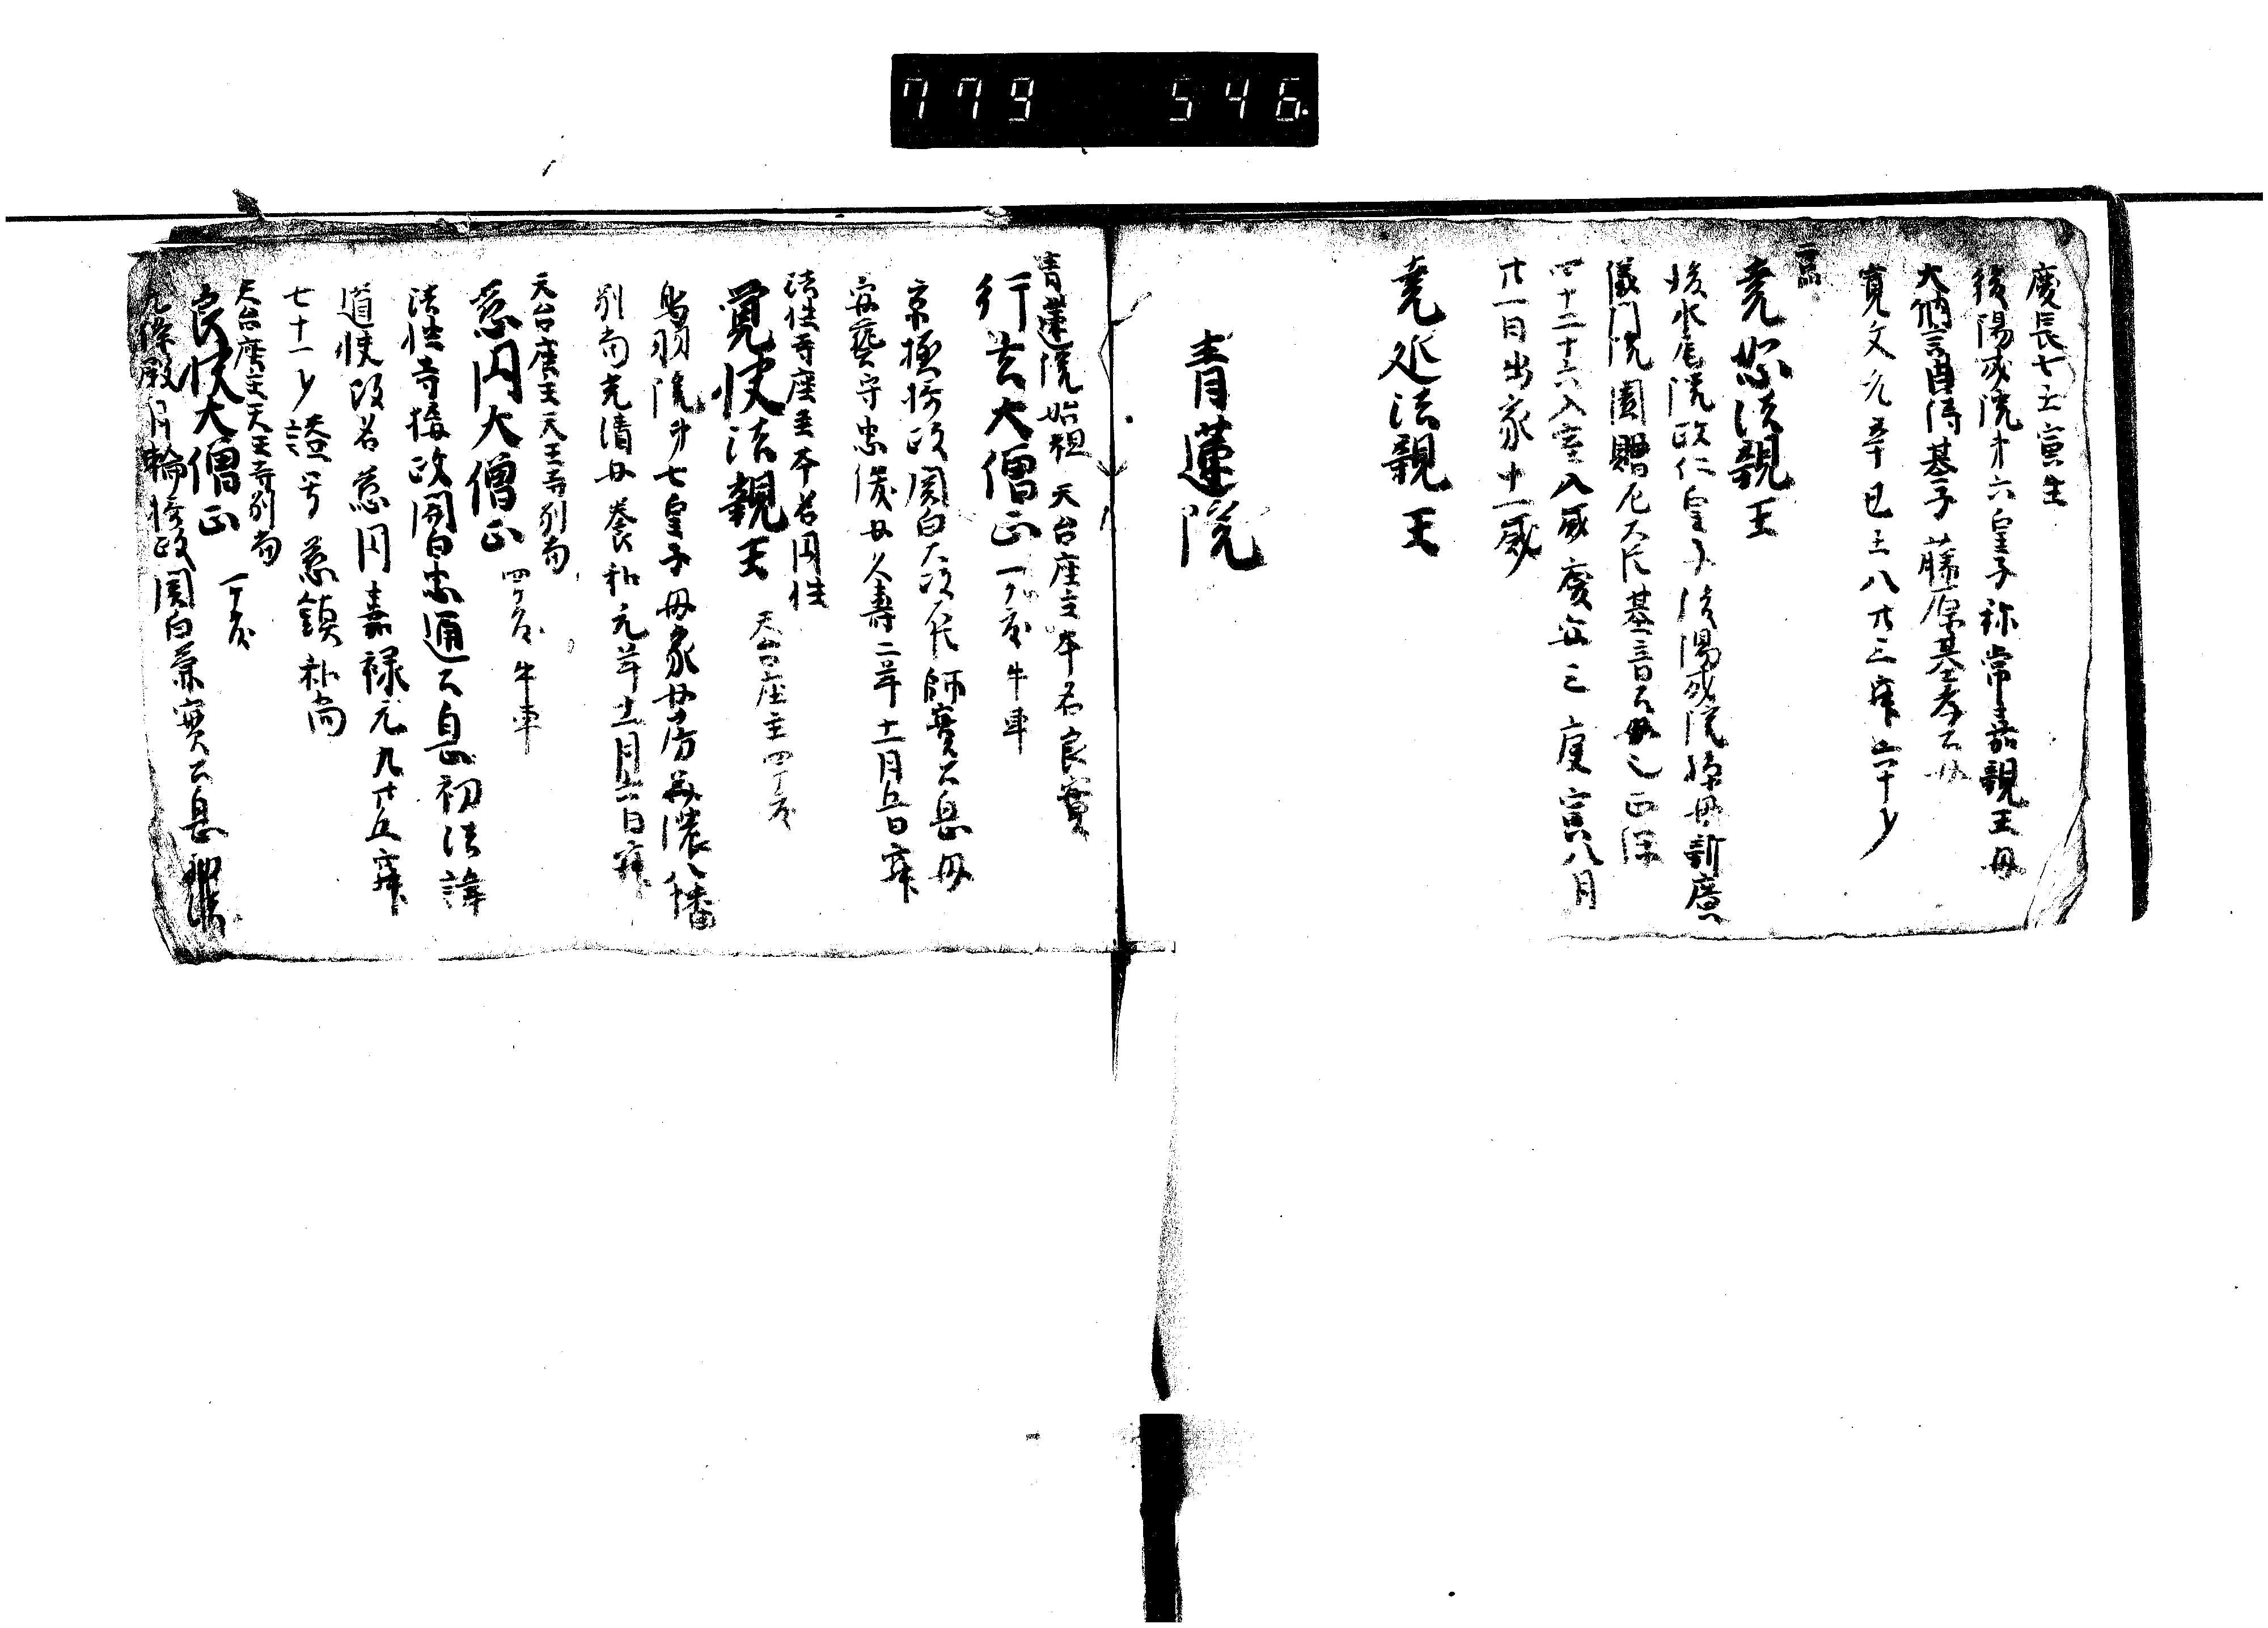 779 546
慶長七壬寅生
後陽成院才六皇子称常嘉親王母
大納言典侍基子藤原基孝公女
寛文元辛巳八廿三寂六十ノ
堯恕法親王
後水尾院政仁皇子後陽成院孫母新廣
儀門院園贈左大臣基音公女也正保
四十二十六入室八歳慶安三庚寅八月
廿一日出家十一歳
堯延法親王
青蓮院
青蓮院始祖 天台座主本名良實
行玄大僧正 一ケ度 牛車
京極摂政関白大政大臣師實公息母
安藝守忠俊女久寿二年十一月五日寂
法性寺座主本名円性
覚快法親王 天台座主四ケ度
鳥羽院才七皇子母家女房美濃八幡
別当光清女養和元年十一月六日寂
天台座主天王寺別当
慈円大僧正 四ケ度 牛車
法性寺摂政関白忠通公息初法諱
道快改名慈円嘉禄元九廿五寂
七十一ノ諡号慈鎮和尚
天台座主天王寺別当
良快大僧正 一ケ度
九條殿月輪摂政関白兼實公息